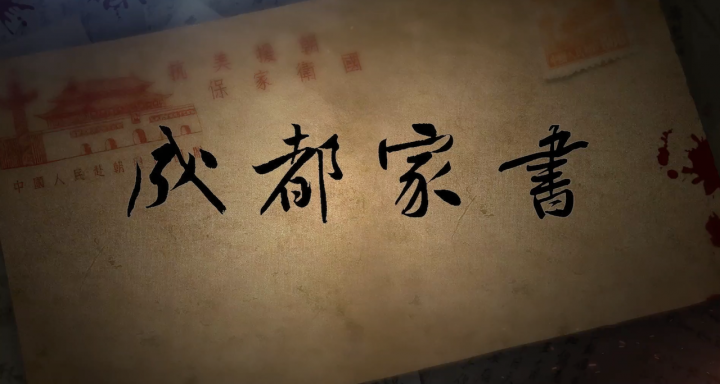 抗美援朝
保家衛國
中國人民赴朝
成都家書